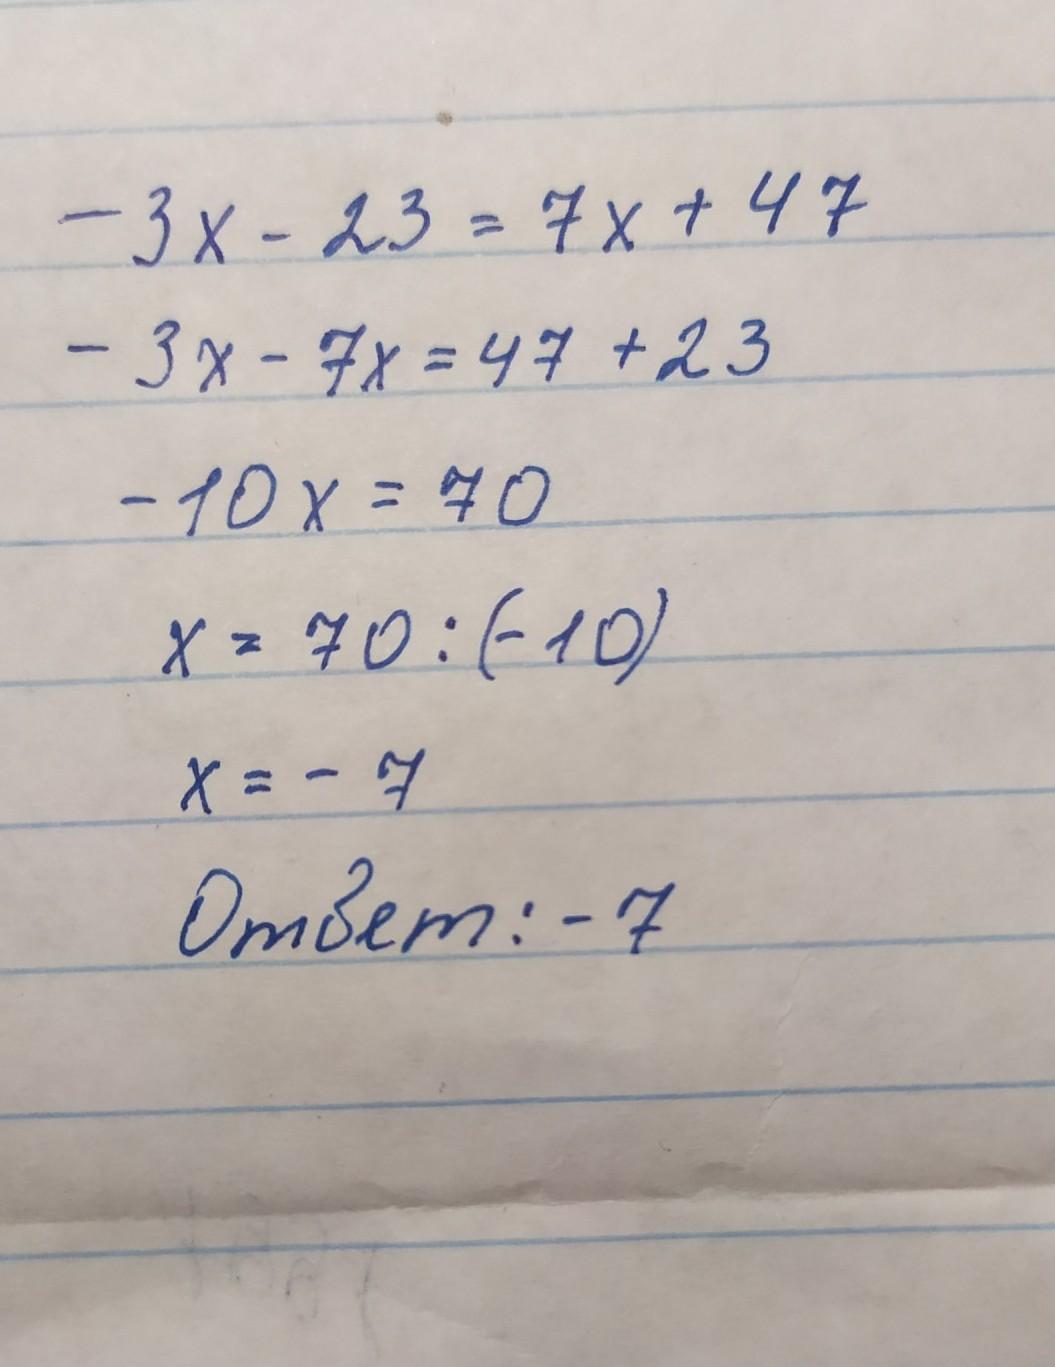 -3x - 23 = 7x + 47
- 3x - 7x = 47 + 23
-10x = 70
x = 70 : (-10)
x = - 7
Ответ: - 7